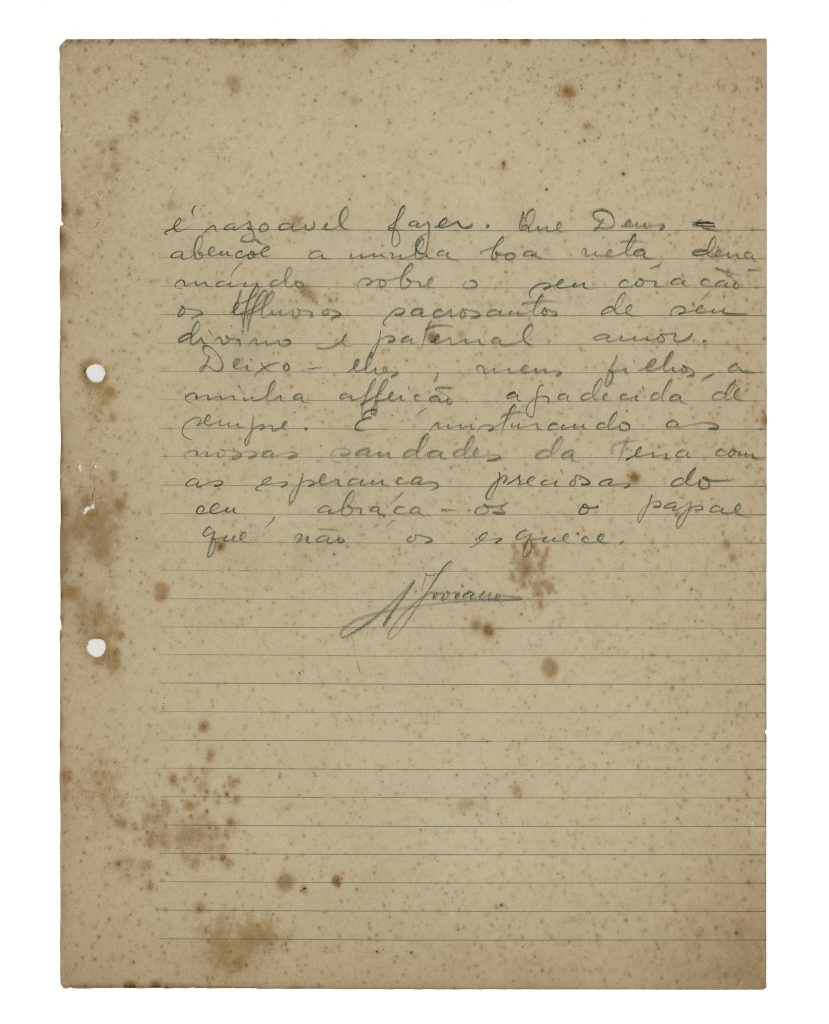 é razoavel fazer. Que Deus
abençôe a minha boa neta, derra
mando sobre o seu coração
os effluvios sacrosantos de seu
divino e paternal amor.
Deixo-lhes, meus filhos, a
minha affeição agradecida de
sempre. E misturando as
nossas saudades da Terra com
as esperanças preciosas do
seu, abraça-os o papae
que não os esquece.